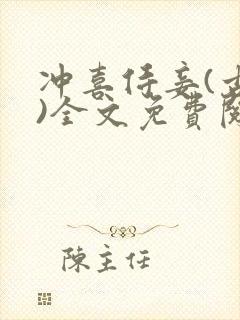 冲喜侍妾(
)全文免費閱
陳主任